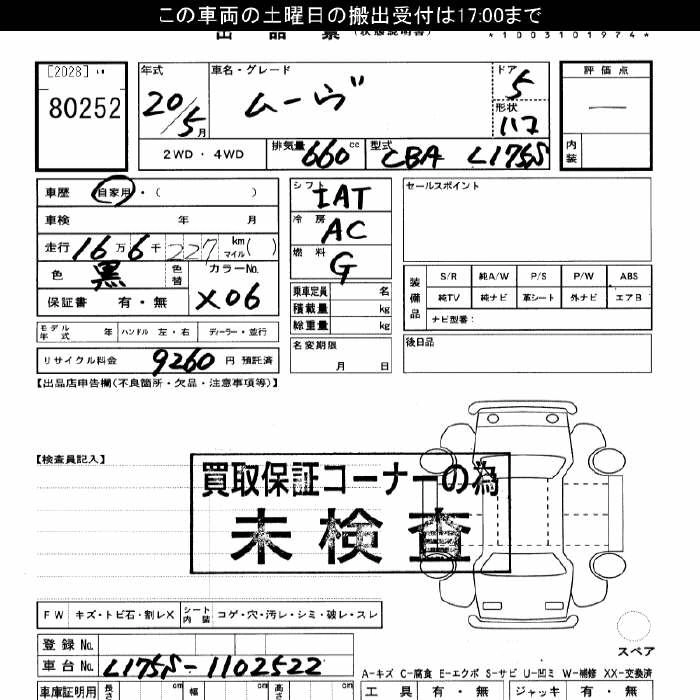 この車両の土曜日の搬出受付は17:00まで
出品票 (状態説明書) *1003101974*
[2028]
80252
年式 車名・グレード ドア 評価点
20/5月 ムーヴ 5 —
形状
ハコ
2WD・4WD 排気量 660cc 型式 CBA L175S 内装
車歴 自家用・( )
シフト IAT
セールスポイント
車検 年 月
冷房 AC
走行 16万6千227km マイル( )
燃料 G
色 黒 色替 カラーNo. X06
保証書 有・無
乗車定員 名
積載量 kg
総重量 kg
装備品 S/R 純A/W P/S P/W ABS
純TV 純ナビ 革シート 外ナビ エアB
ナビ型番:
モデル年式 年 ハンドル 左・右 ディーラー・並行
名変期限 月 日
後日品
リサイクル料金 9260円 預託済
【出品店申告欄(不良箇所・欠品・注意事項等)】
【検査員記入】
買取保証コーナーの為
未検査
FW キズ・トビ石・割レX シート内装 コゲ・穴・汚レ・シミ・破レ・スレ
スペア
登録No.
車台No. L175S-1102522
A-キズ C-腐食 E-エクボ S-サビ U-凹ミ W-補修 XX-交換済
車庫証明用 長さ cm 幅 cm 高さ cm 工具 有・無 ジャッキ 有・無